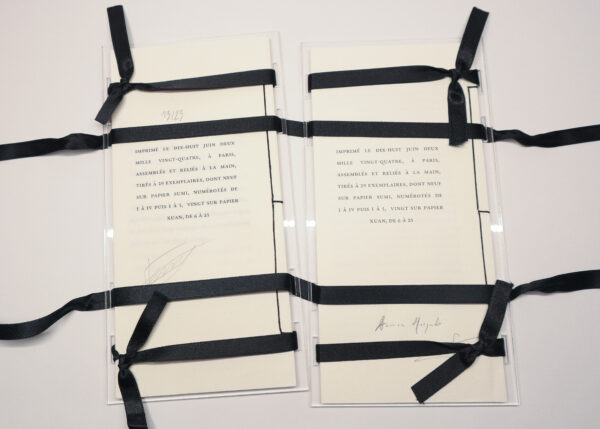 IMPRIMÉ LE DIX-HUIT JUIN DEUX
MILLE VINGT-QUATRE, À PARIS,
ASSEMBLÉS ET RELIÉS À LA MAIN,
TIRÉS À 29 EXEMPLAIRES, DONT NEUF
SUR PAPIER SUMI, NUMÉROTÉS DE
I À IV PUIS 1 À 5, VINGT SUR PAPIER
XUAN, DE 6 À 25
IMPRIMÉ LE DIX-HUIT JUIN DEUX
MILLE VINGT-QUATRE, À PARIS,
ASSEMBLÉS ET RELIÉS À LA MAIN,
TIRÉS À 29 EXEMPLAIRES, DONT NEUF
SUR PAPIER SUMI, NUMÉROTÉS DE
I À IV PUIS 1 À 5, VINGT SUR PAPIER
XUAN, DE 6 À 25